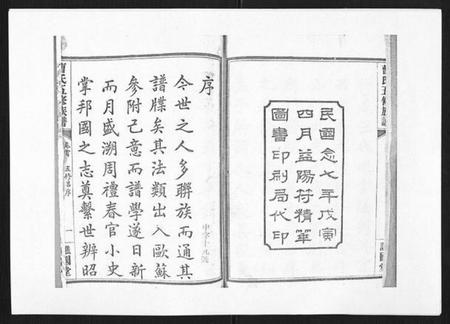 民國念七年戊寅
四月益陽符精華
圖書印刷局代印
序
今世之人多聯族而通其
譜牒矣其法類出入歐蘇
參附己意而譜學遂日新
而月盛溯周禮春官小史
掌邦國之志奠繫世辨昭
曹氏五修族譜
卷首 五修舊序 一